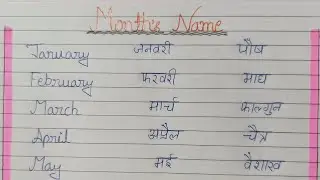 Months Name
January जनवरी पौष
February फरवरी माघ
March मार्च फाल्गुन
April अप्रैल चैत्र
May मई वैशाख